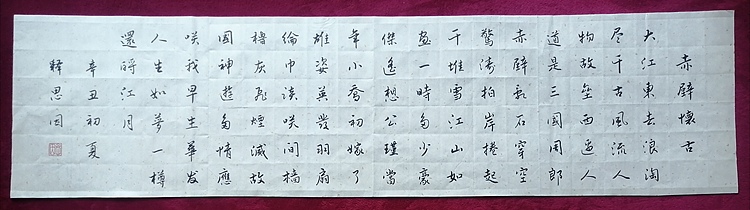 赤壁懷古
大江東去浪淘
尽千古風流人
物故垒西邊人
道是三國周郎
赤壁亂石穿空
驚濤拍岸捲起
千堆雪江山如
畫一時多少豪
傑遙想公瑾當
年小喬初嫁了
雄姿英發羽扇
綸巾談咲間檣
櫓灰飛煙滅故
國神遊多情應
咲我早生華发
人生如夢一樽
還酹江月
辛丑初夏
釋思因